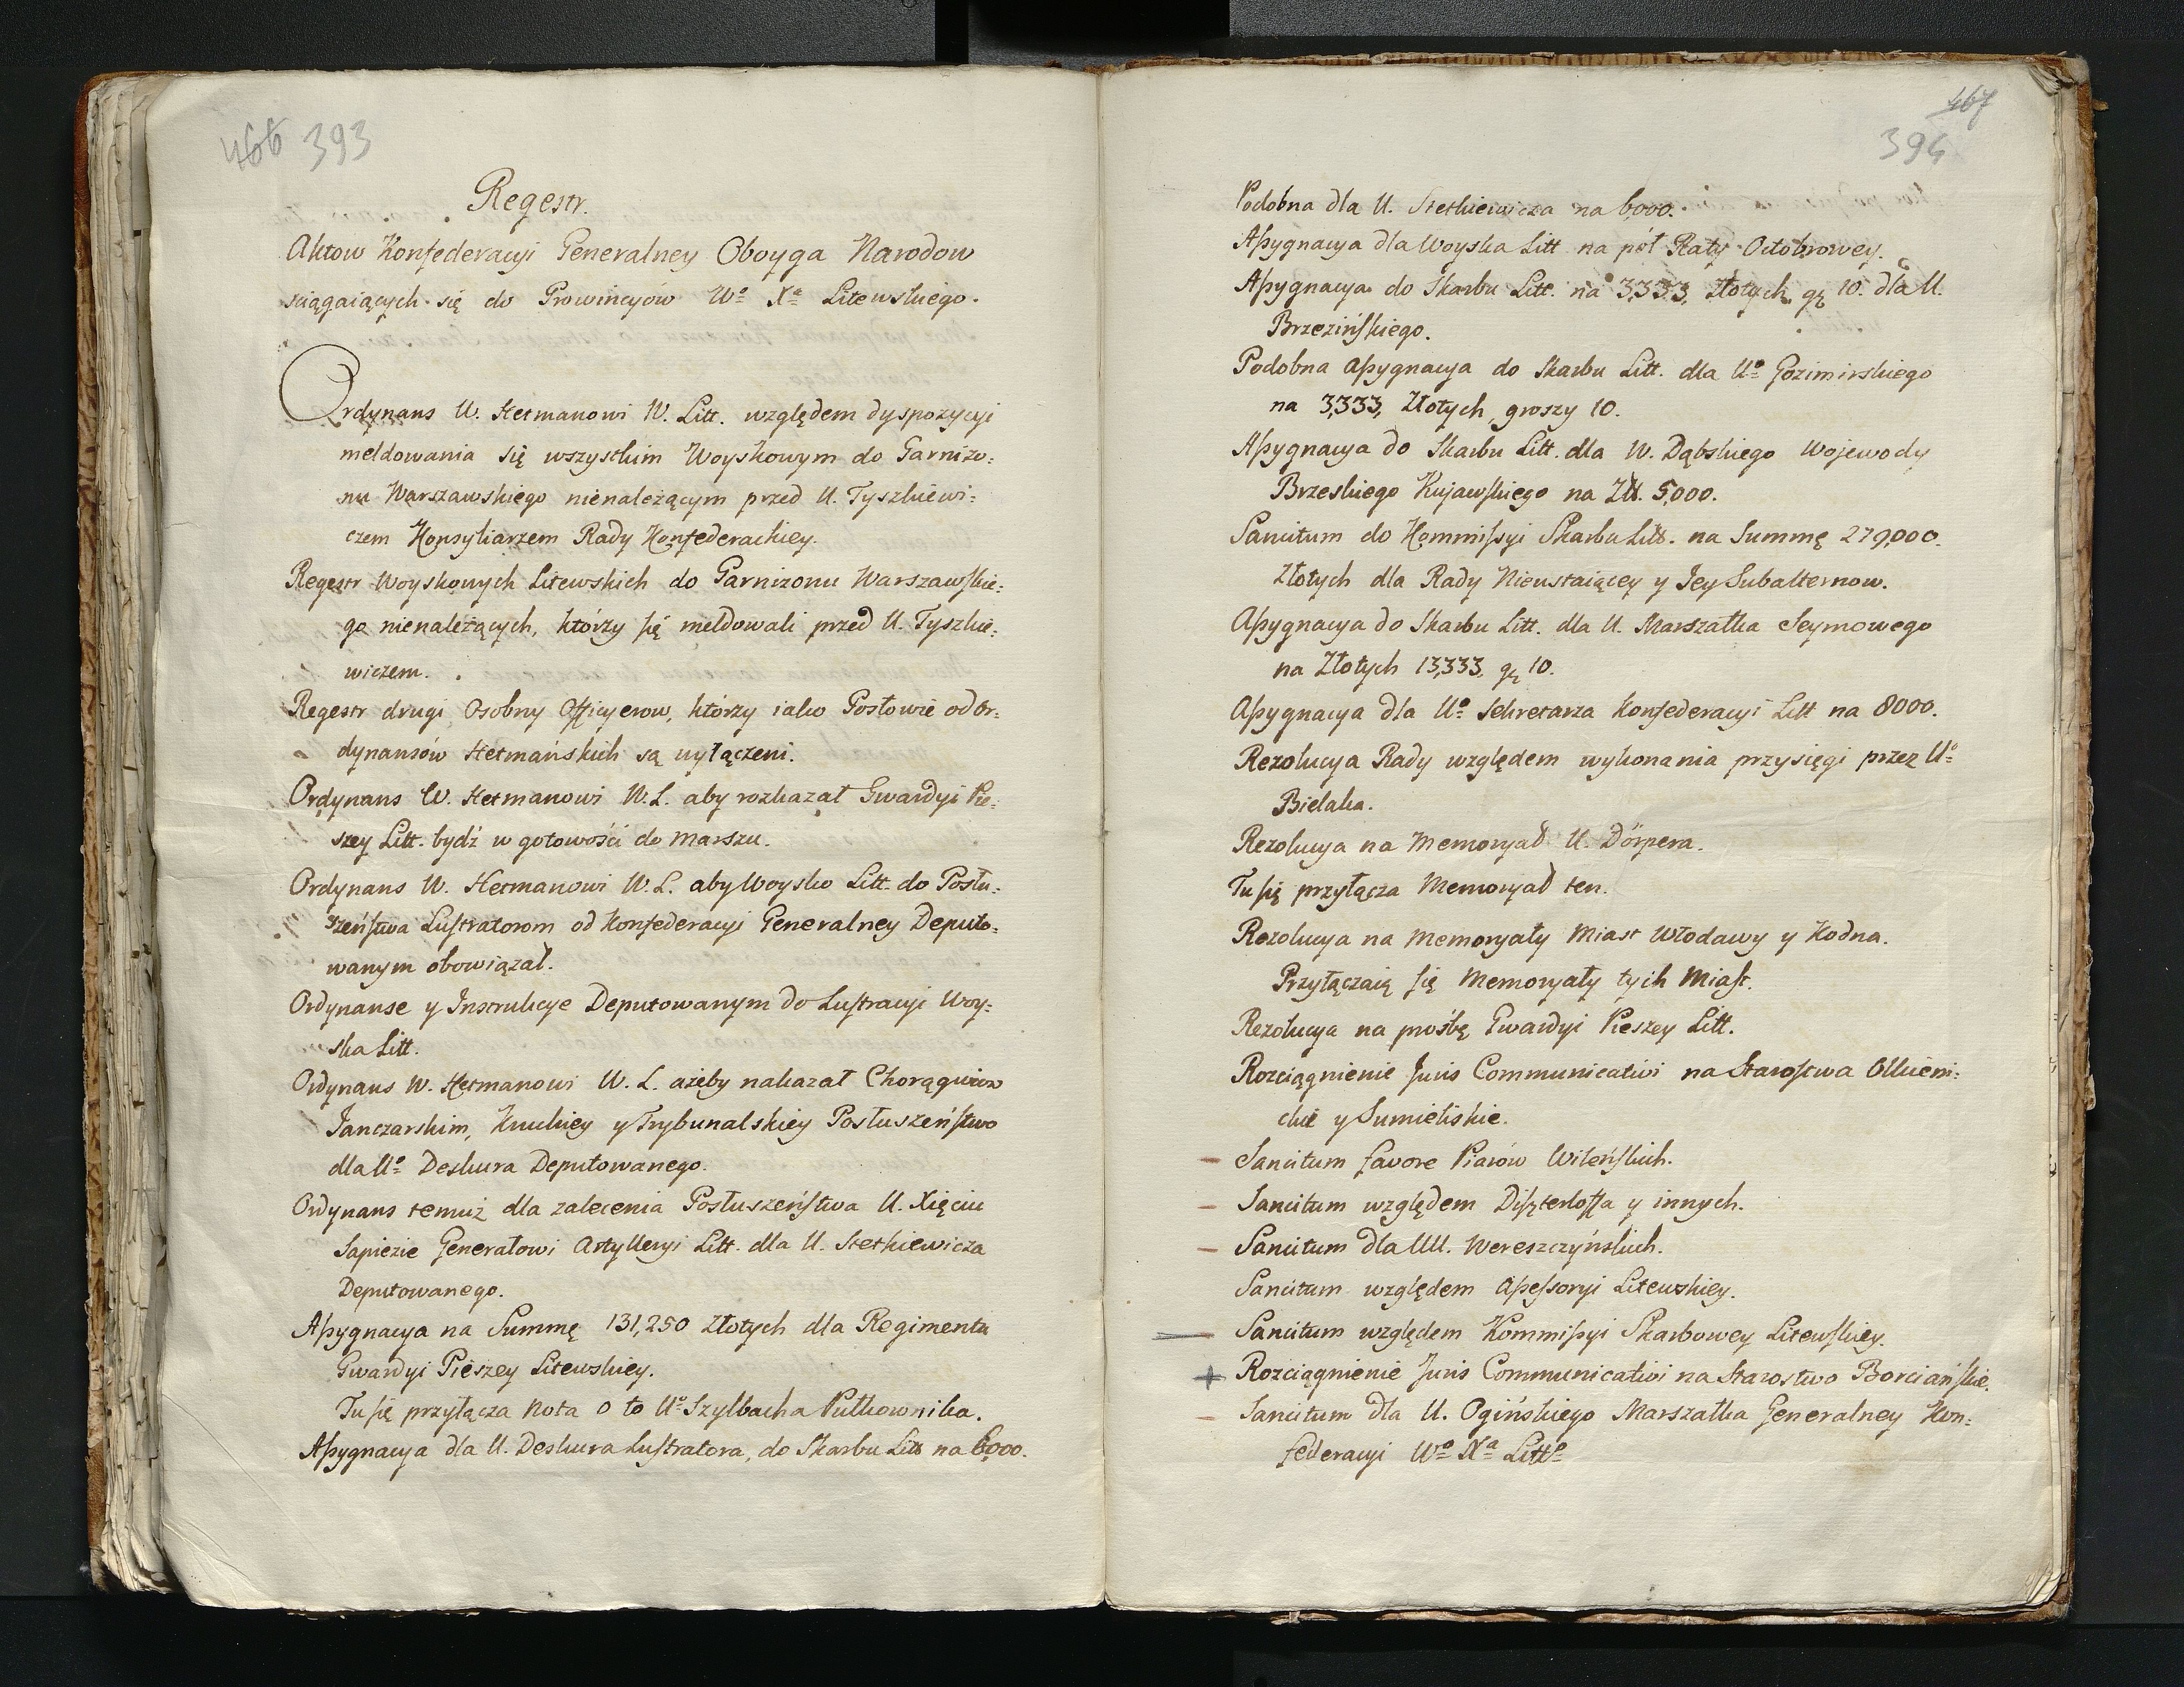 466 393
Regestr.
Aktow Konfederacyi Generalney Oboyga Narodow
sciągaiących się do Prowincyów Wº Xª Litewskiego.
Ordynans W. Hetmanowi W. Litt. względem dyspozycyi
meldowania się wszystkim Woyskowym do Garnizo=
nu Warszawskiego nienależącym przed U. Tyszkiewi=
czem Konsyliarzem Rady Konfederackiey.
Regestr Woyskowych Litewskich do Garnizonu Warszawskie=
go nienależących, którzy się meldowali przed U. Tyszkie=
wiczem.
Regestr drugi Osobny Officyerow, którzy iako Posłowie od Or=
dynansów Hetmańskich są wyłączeni.
Ordynans W. Hetmanowi W. L. aby rozkazał Gwardyi Pie=
szey Litt. bydź w gotowości do marszu.
Ordynans W. Hetmanowi W. L. aby Woysko Litt. do Posłu=
szeństwa Lustratorom od Konfederacyi Generalney Deputo=
wanym obowiązał.
Ordynanse y Instrukcye Deputowanym do Lustracyi Woy=
ska Litt.
Ordynans W. Hetmanowi W. L. ażeby nakazał Chorągwiom
Janczarskim, Knuckiey y Trybunalskiey Posłuszeństwo
dla Uº Deskura Deputowanego.
Ordynans temuż dla zalecenia Posłuszeństwa U. Xięciu
Sapiezie Generałowi Artylleryi Litt. dla U. Stetkiewicza
Deputowanego.
Assygnacya na Summę 131,250 Złotych dla Regimentu
Gwardyi Pieszey Litewskiey.
Tu się przyłącza Nota o to Uº Szylbacha Pułkownika.
Assygnacya dla U. Deskura Lustratora, do Skarbu Litt na 6,000.
467
394
Podobna dla U. Stetkiewicza na 6,000.
Assygnacya dla Woyska Litt na pół Raty Octobrowey.
Assygnacya do Skarbu Litt. na 3,333, Złotych gę 10. dla U.
Brzezińskiego.
Podobna Assygnacya do Skarbu Litt. dla Uº Gozimirskiego
na 3,333, Złotych groszy 10.
Assygnacya do Skarbu Litt. dla W. Dąbskiego Wojewody
Brzeskiego Kujawskiego na Zł. 5,000.
Sancitum do Kommissyi Skarbu Litt. na Summę 279,000.
Złotych dla Rady Nieustaiącey y Jey Subalternow.
Assygnacya do Skarbu Litt. dla U. Marszałka Seymowego
na Złotych 13,333, gę 10.
Assygnacya dla Uº Sekretarza Konfederacyi Litt na 8000.
Rezolucya Rady względem wykonania przysięgi przez Uº
Bielaka.
Rezolucya na Memoryał U. Dörpera.
Tu się przyłącza Memoryał ten.
Rezolucya na Memoryały Miast Włodawy y Kodna.
Przyłączaią się Memoryały tych Miast.
Rezolucya na prośbę Gwardyi Pieszey Litt.
Rozciągnienie Juris Communicativi na Starostwa Olkieni=
ckie y Sumieliskie.
Sancitum favore Piarów Wileńskich.
Sancitum względem Diszterloffa y innych.
Sancitum dla UU. Wereszczyńskich.
Sancitum względem Assessoryi Litewskiey.
Sancitum względem Kommissyi Skarbowey Litewskiey.
Rozciągnienie Juris Communicativi na Starostwo Borciańskie.
Sancitum dla U. Ogińskiego Marszałka Generalney Kon=
federacyi Wº Xª Littº